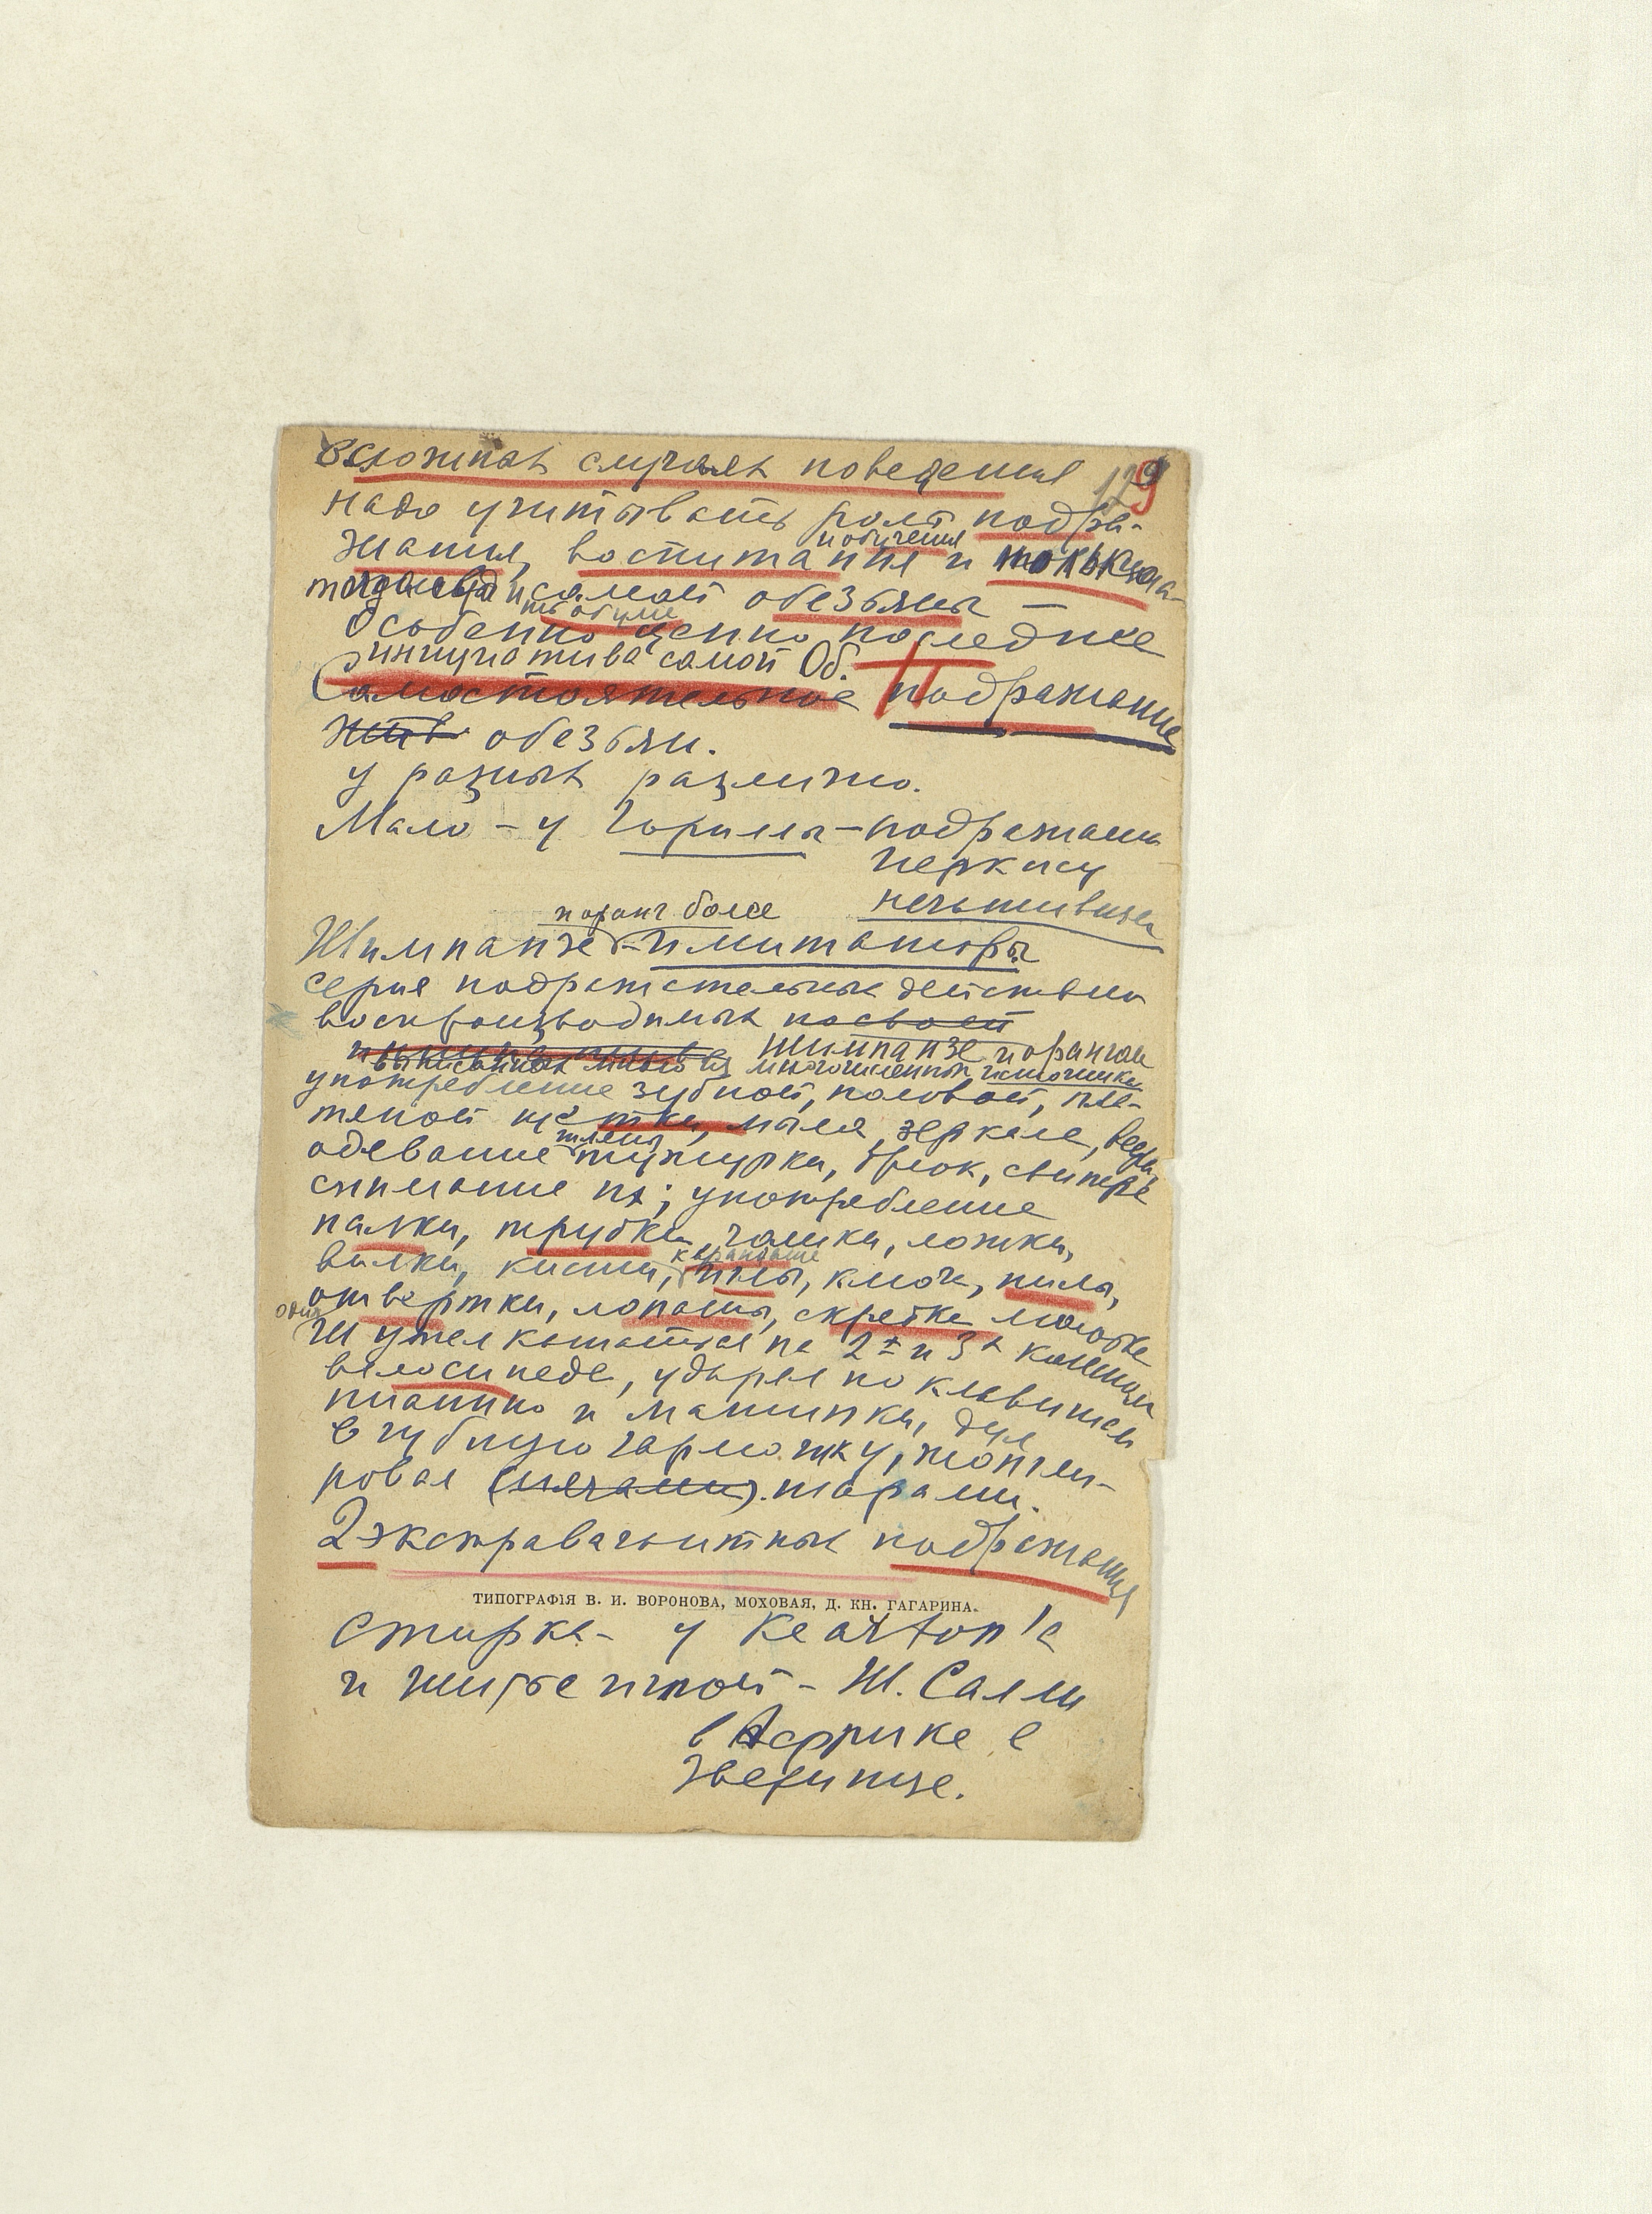 В сложных случаях поведения
129
надо учитывать роль подра-
жания, воспитания и
и обучения
самой обезьяны —
Особенно ценно последнее
инициатива самой Об.
Самостоятельное подражание
обезьян.
у разных различно.
Мало - у Гориллы - подражание
Иеркису
и оранг более
Шимпанзе - имитаторы
серия подражательных действий
воспроизводимых
шимпанзе и орангом
многочисленных источников
употребление зубной, половой, пла-
тяной щетки, мыла, зеркала, ведра,
шляпы
одевание тужурки, брюк, свитера
снимание их; употребление
палки, трубки, чашки, ложки,
карандаша
вилки, кисти, иглы, ключа, пилы,
отвертки, лопаты, скребка молотка
один
Ш умел кататься на 2х и 3х колесном
велосипеде, ударял по клавишам
пианино и машинки, дул
в губную гармошку, жонгли-
ровал (мячами) шарами.
2 экстравагантных подражания
ТИПОГРАФІЯ В. И. ВОРОНОВА, МОХОВАЯ, Д. КН. ГАГАРИНА.
Стирка - у Kearton'а
и шитье иглой - Ш. Салли
в Африке в
Зверинце.